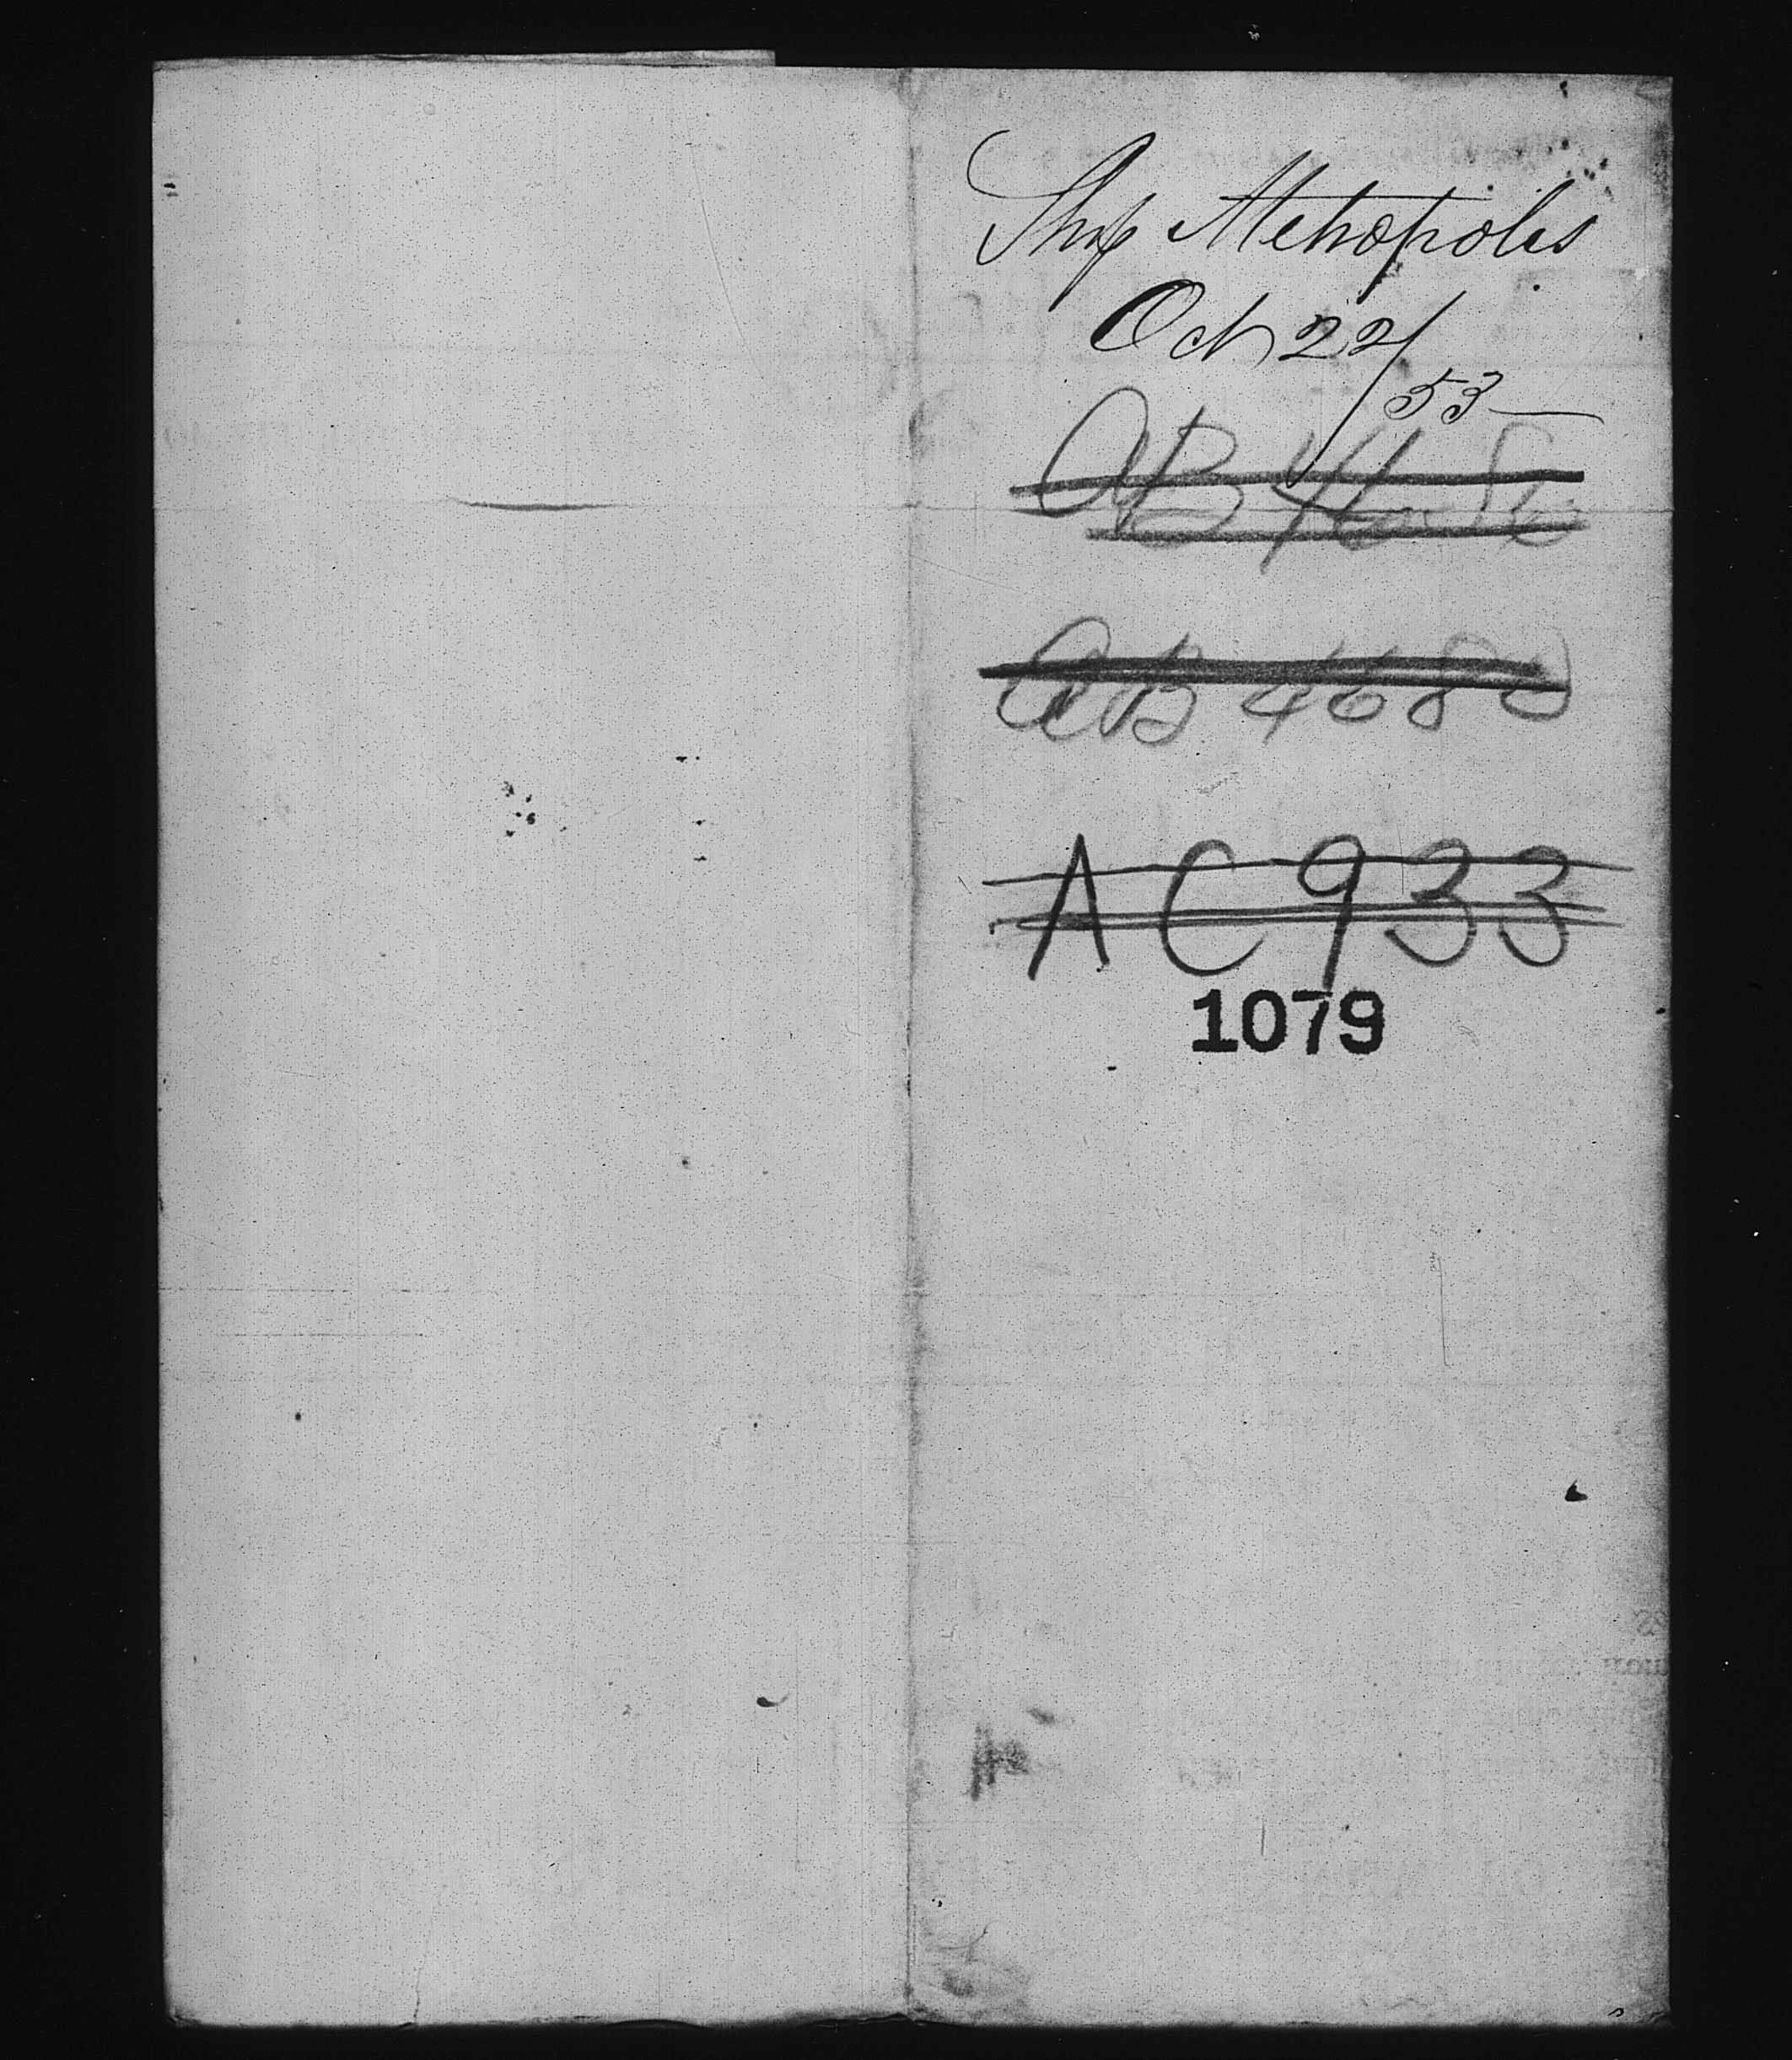 Ship Metropolis
Oct 22/
53
AB 468
AB 4680
AC 933
1079